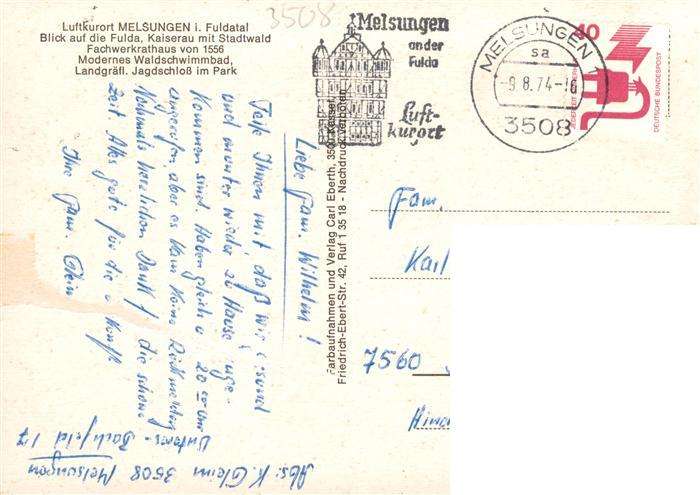 Luftkurort MELSUNGEN i. Fuldatal
Blick auf die Fulda, Kaiserau mit Stadtwald
Fachwerkrathaus von 1556
Modernes Waldschwimmbad,
Landgräfl. Jagdschloß im Park
3508
Melsungen
an der
Fulda
Luft-
kurort
MELSUNGEN 1
sa
-9.8.74-16
3508
40
DEUTSCHE BUNDESPOST
Liebe Fam. Wilhelm!
Teile Ihnen mit daß wir gesund
und munter wieder zu Hause ange-
kommen sind. Haben gleich u 20 00 Uhr
angerufen aber es kam keine Rückmeldung
Nochmals herzlichen Dank f. die schöne
Zeit. Alles gute für die
Ihre Fam. Gleim
Abs: K. Gleim 3508 Melsungen
Unteres- 17
Farbaufnahmen und Verlag Carl Eberth, 3500 Kassel,
Friedrich-Ebert-Str. 42, Ruf 1 35 18 - Nachdruck verboten
Fam.
Karl
7560